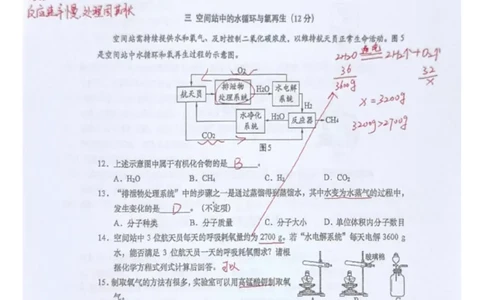 反应速率慢,处理周期长
三 空间站中的水循环与氧再生(12分)
空间站需持续提供水和氧气、及时控制二氧化碳浓度,以维持航天员正常生命活动。图5
是空间站中水循环和氧再生过程的示意图。
2H₂O 通电 2H₂↑+O₂↑
36 32
3600g x
x=3200g
3200g>2700g
O2
航天员
排泄物
处理系统
H2O
水电解
系统
H2
水净化
系统
H2O
反应器
CH4
CO2
图5
12. 上述示意图中属于有机化合物的是 B 。
A. H2O B. CH4 C. H2 D. CO2
13. “排泄物处理系统”中的步骤之一是通过蒸馏得到蒸馏水,其中水变为水蒸气的过程中,
发生变化的是 D 。(不定项)
A. 分子种类 B. 分子质量 C. 分子大小 D. 单位体积内分子数目
14. 空间站中5位航天员每天的呼吸耗氧量约为2700 g。若“水电解系统”每天电解3600 g
水,能否满足3位航天员一天的呼吸耗氧需求?请根
据化学方程式列式计算后回答。 可以
15. 制取氧气的方法有很多,实验室可以用高锰酸钾制取氧
气。
玻璃棉